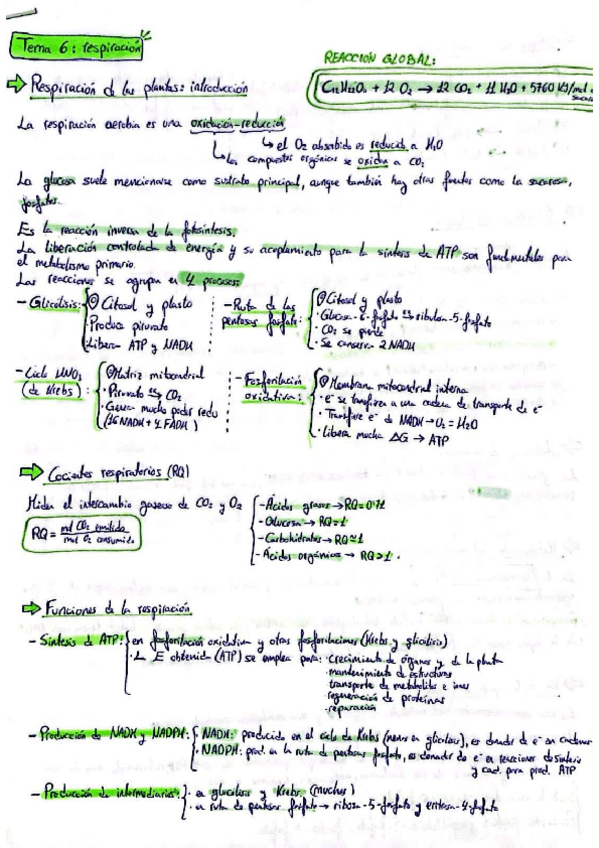 Tema 6: respiración
REACCION GLOBAL:
Respiración d las plantas: introducción
C12H22O11 + 12 O2 → 12 CO2 + 11 H2O + 5760 KJ/mol
La respiración aerobia es una oxidación-reducción
el O2 absorbido es reducido a H2O
los compuestos orgánicos se oxidan a CO2
La glucosa suele mencionarse como sustrato principal, aunque también hay otras fuentes como la sacarosa,
fosfatos...
Es la reacción inversa de la fotosíntesis.
La liberación controlada de energía y su acoplamiento para la síntesis de ATP son fundamentales para
el metabolismo primario.
Las reacciones se agrupan en 4 procesos
- Glicólisis: Citosol y plasto
· Produce piruvato
· Libera ATP y NADH
- Ruta de las pentosas fosfato: Citosol y plasto
· Glucosa-6-fosfato → ribulosa-5-fosfato
· CO2 se pierde
· Se conserva 2NADH
- Ciclo (de Krebs): Matriz mitocondrial
· Piruvato → CO2
· Genera mucho poder redu
- Fosforilación oxidativa: Membrana mitocondrial interna
· e- se transfieren a una cadena de transporte de e-
· Transfiere e- de NADH → O2 = H2O
· Libera mucha ΔG → ATP
Cocientes respiratorios (RQ)
Miden el intercambio gaseoso de CO2 y O2
RQ = mol CO2 emitido / mol O2 consumido
- Ácidos grasos → RQ = 0'71
- Glucosa → RQ = 1
- Carbohidratos → RQ ≃ 1
- Ácidos orgánicos → RQ > 1.
Funciones de la respiración
- Síntesis de ATP: en fosforilación oxidativa y otras fosforilaciones (Krebs y glicólisis)
· La E obtenida (ATP) se emplea para: · Crecimiento de órganos y de la planta
· mantenimiento de estructuras
· transporte de metabolitos e iones
· regeneración de proteínas
· reparación
- Producción de NADH y NADPH: · NADH: producido en el ciclo de Krebs (menos en glicólisis), es donador de e- en cadena
· NADPH: prod. en la ruta de pentosas fosfato, es donador de e- en reacciones de síntesis
y cad. para prod. ATP
- Producción de intermediarios: · en glucólisis y Krebs (muchos)
· en ruta de pentosas fosfato → ribosa-5-fosfato y eritrosa-4-fosfato